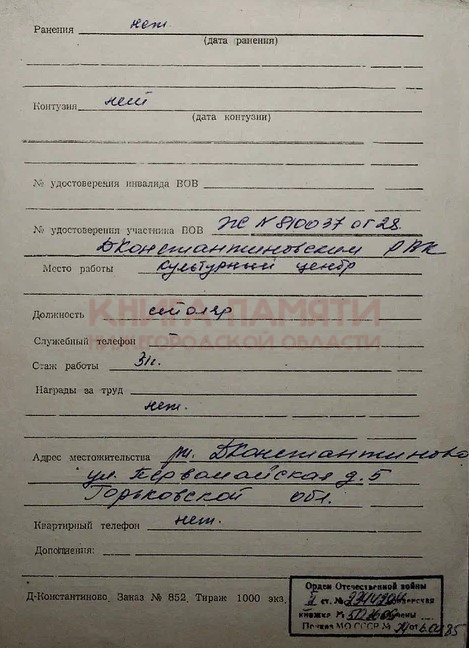 Ранения нет
(дата ранения)
Контузия нет
(дата контузии)
№ удостоверения инвалида ВОВ
№ удостоверения участника ВОВ ЖN 810037 от 28.
ДКонстантиновским РВК
Место работы культурный центр
КНИГА ПАМЯТИ
Должность столяр
НИЖЕГОРОДСКОЙ ОБЛАСТИ
Служебный телефон
Стаж работы 31
Награды за труд
нет.
Адрес местожительства ДКонстантиново
ул. Первомайская д. 5
Горьковской обл.
Квартирный телефон нет.
Дополнения:
Д-Константиново, Заказ № 852, Тираж 1000 экз.
Орден Отечественной войны
II ст. №
книжка №
МО СССР №